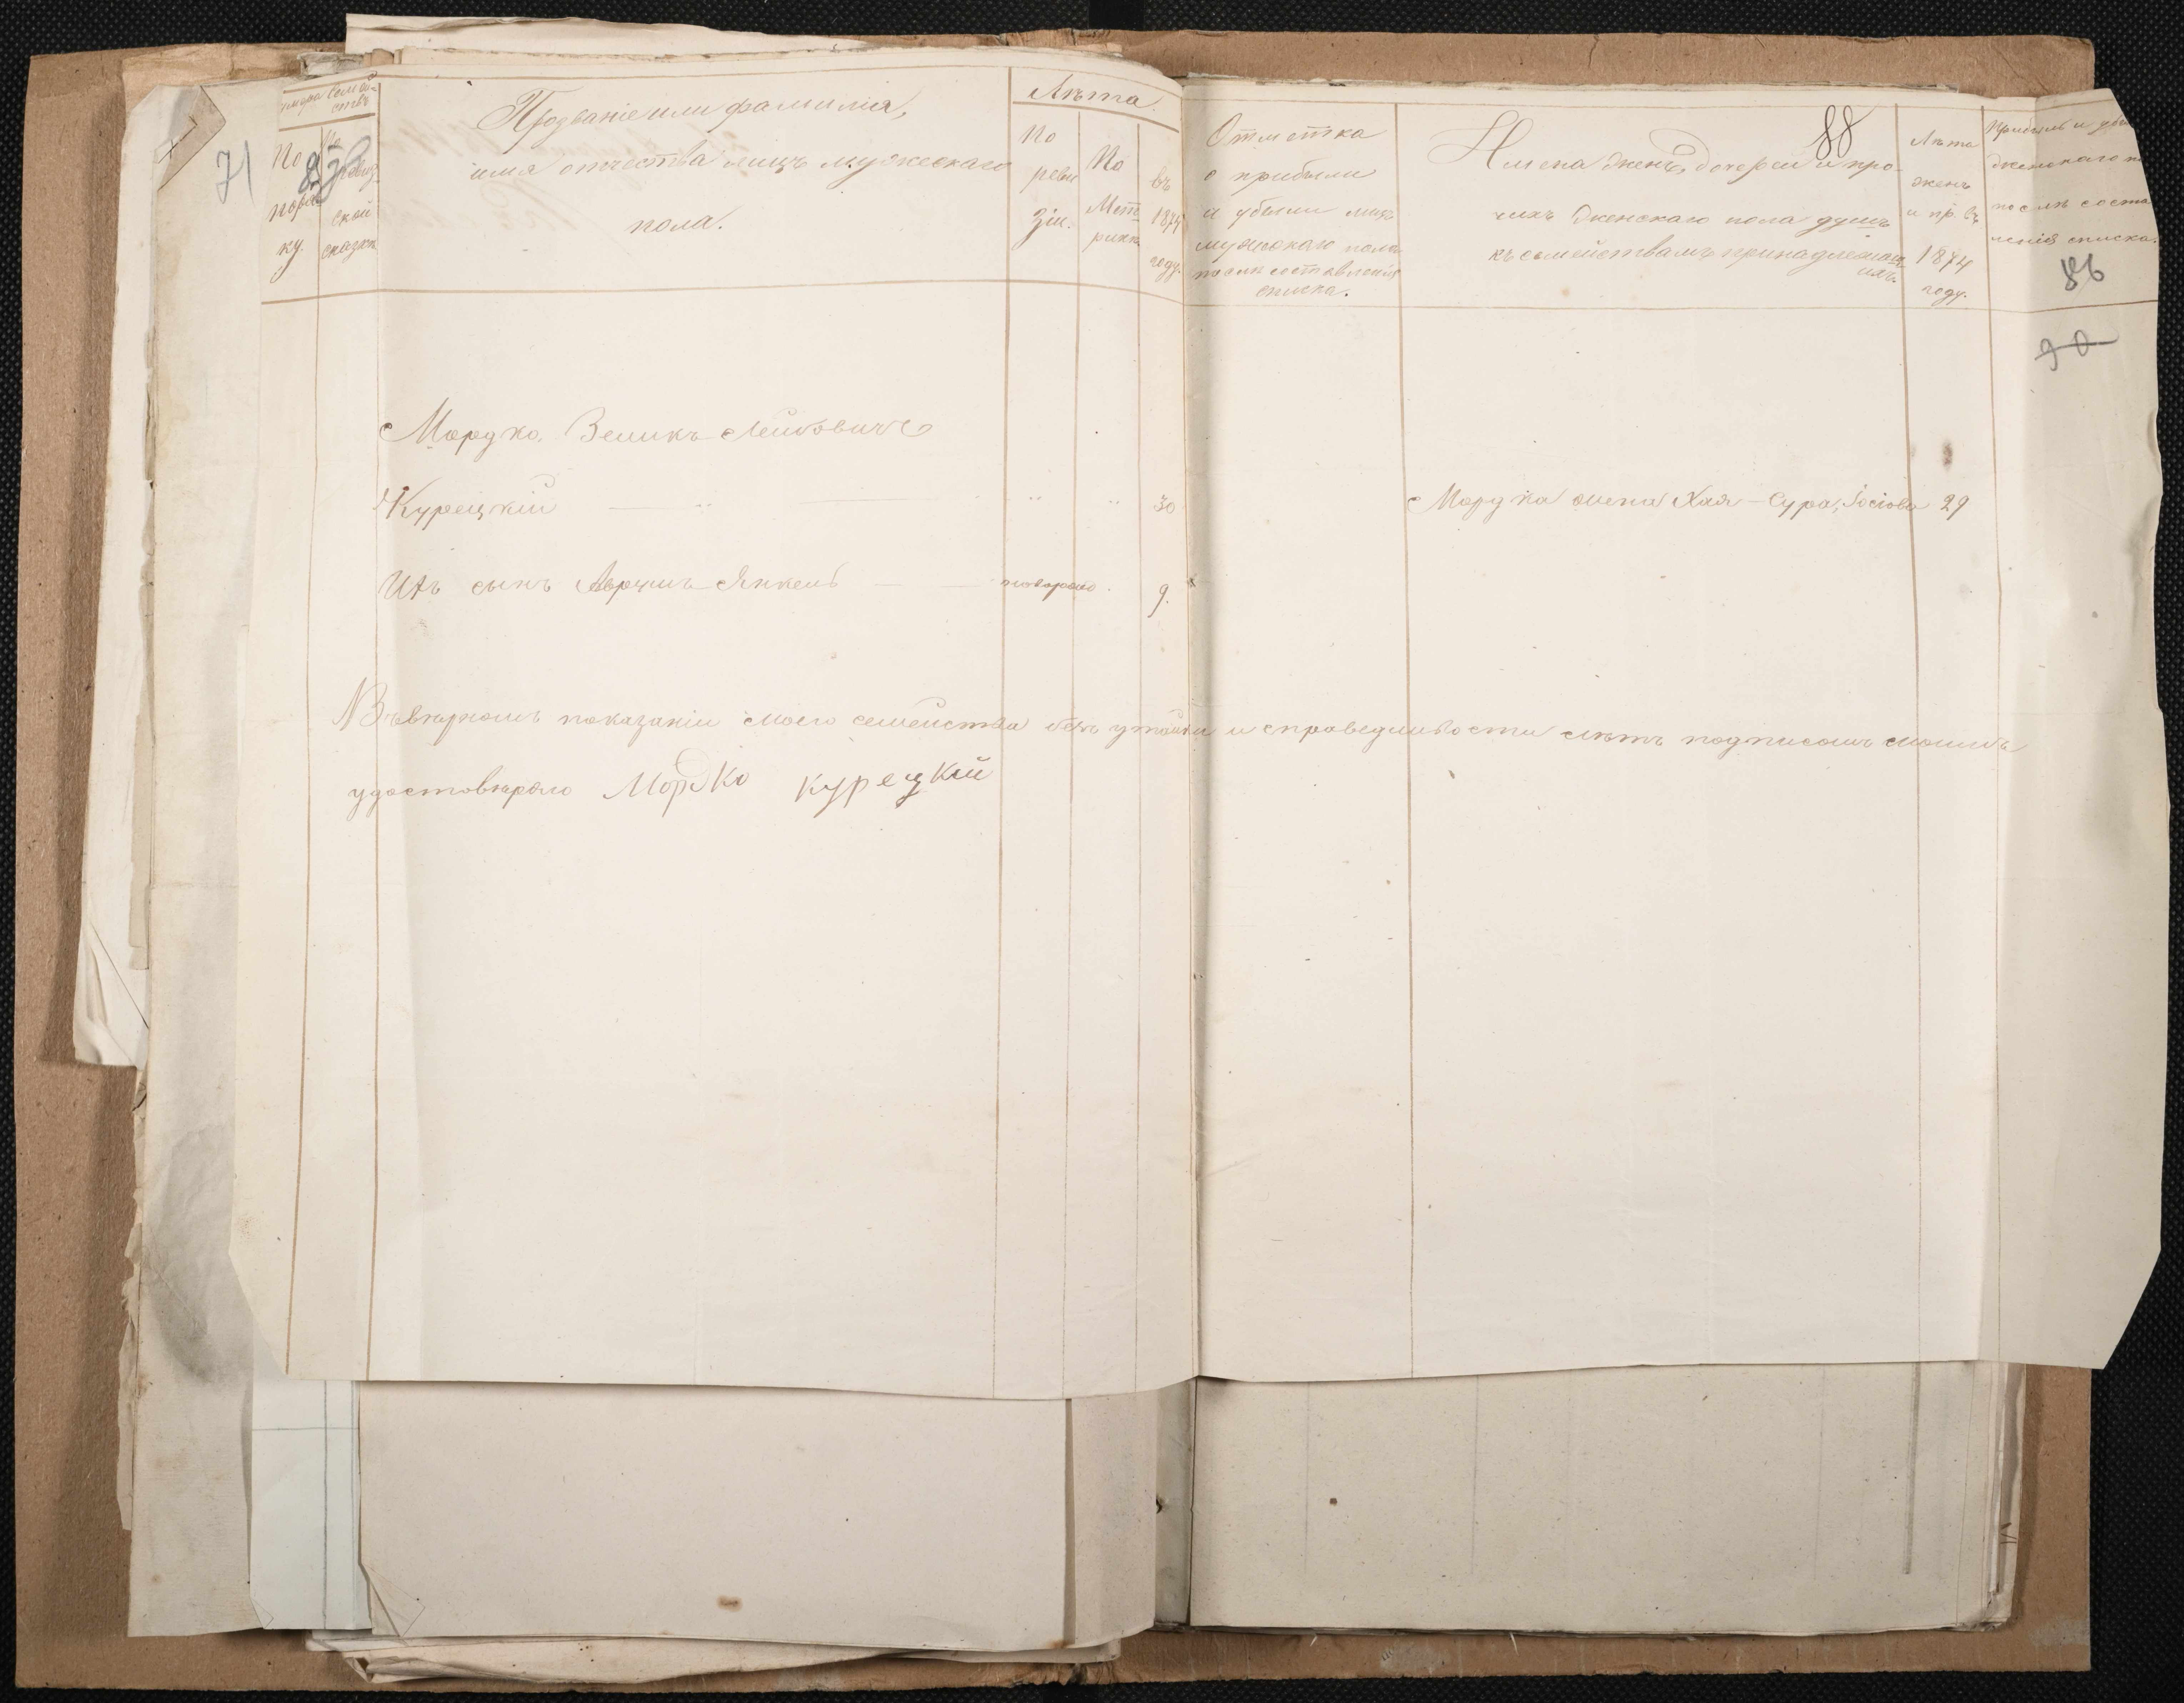 71
Нумера семей-
ствъ
По
поряд-
ку.
По
ревиз-
ской
сказкѣ
87
Прозваніе или фамилія,
имя отчества лицъ мужескаго
пола.
Лѣта.
По
реви
зіи.
По
Мет
рикѣ
въ
1874
году.
Отметка
о прибыли
и убыли лицъ
мужскаго пола
послѣ составленія
списка.
88
Имена женъ, дочерей и про-
чихъ женскаго пола душъ
къ семействамъ принадлежащ
ихъ.
Лѣта
женъ
и пр. въ
1874
году.
Прибыль и убы
женскаго по
послѣ соста
ленія списка.
86
90
Мордко Зеликъ Лейбовичъ
Курецкій 30
Мордка жена Хая-Сура, Іосіова 29
Ихъ сынъ Аврумъ Янкель 9.
Въ вѣрномъ показаніи моего семейства безъ утайки и справедливости лѣтъ подписомъ моимъ
удостовѣряю Мордко Курецкій